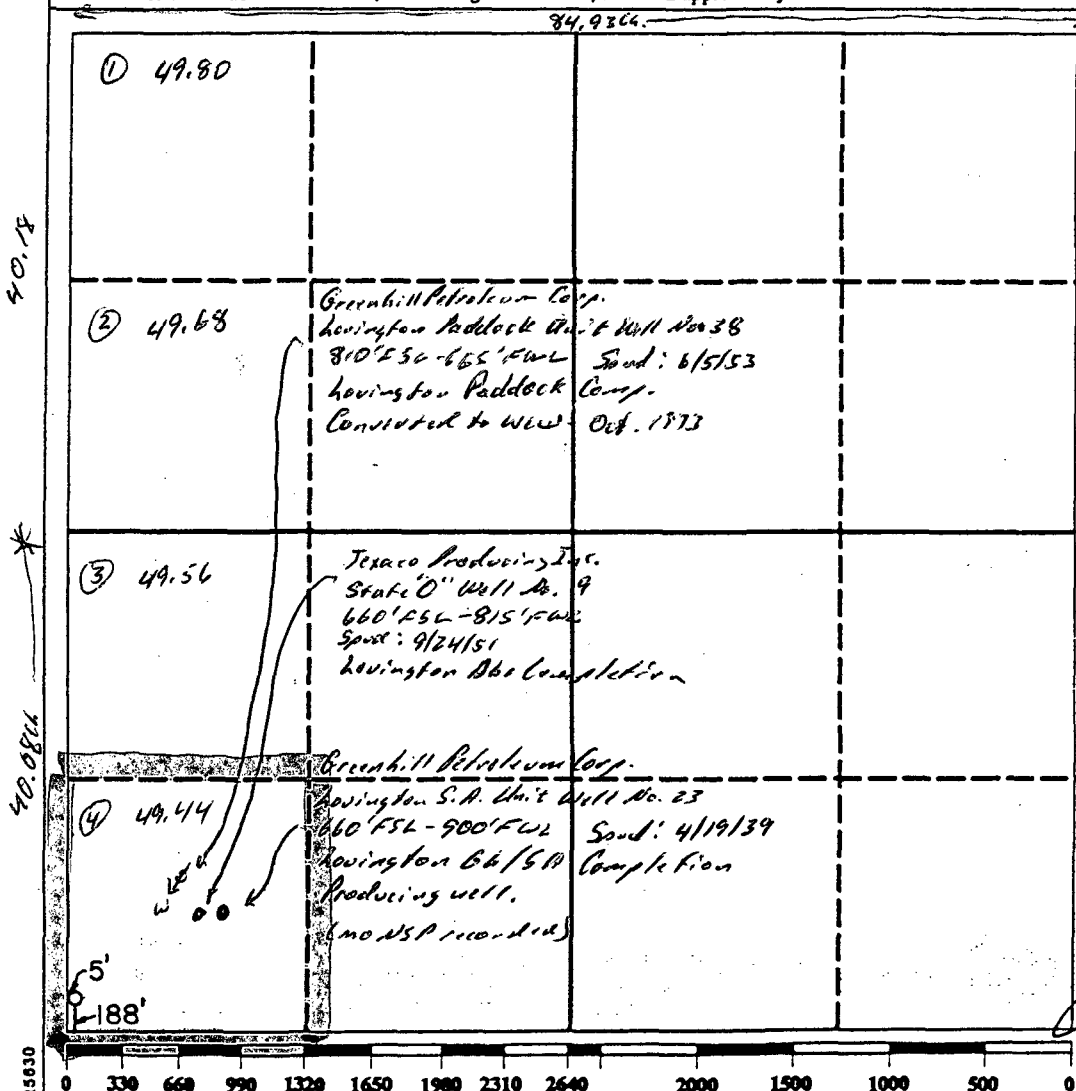 84.93ch.
① 49.80
40.18
② 49.68
Greenhill Petroleum Corp.
Lovington Paddock Unit Well No. 38
810'FSL-665'FWL Spud: 6/5/53
Lovington Paddock Comp.
Converted to WIW - Oct. 1973
③ 49.56
Texaco Producing Inc.
State "O" Well No. 9
660'FSL-815'FWL
Spud: 9/24/51
Lovington Abo Completion
40.08ch
Greenhill Petroleum Corp.
④ 49.44
Lovington S.A. Unit Well No. 23
660'FSL-900'FWL Spud: 4/19/39
Lovington GB/SA Completion
Producing well.
(no NSP recorded)
5'
188'
0 330 660 990 1320 1650 1980 2310 2640 2000 1500 1000 500 0